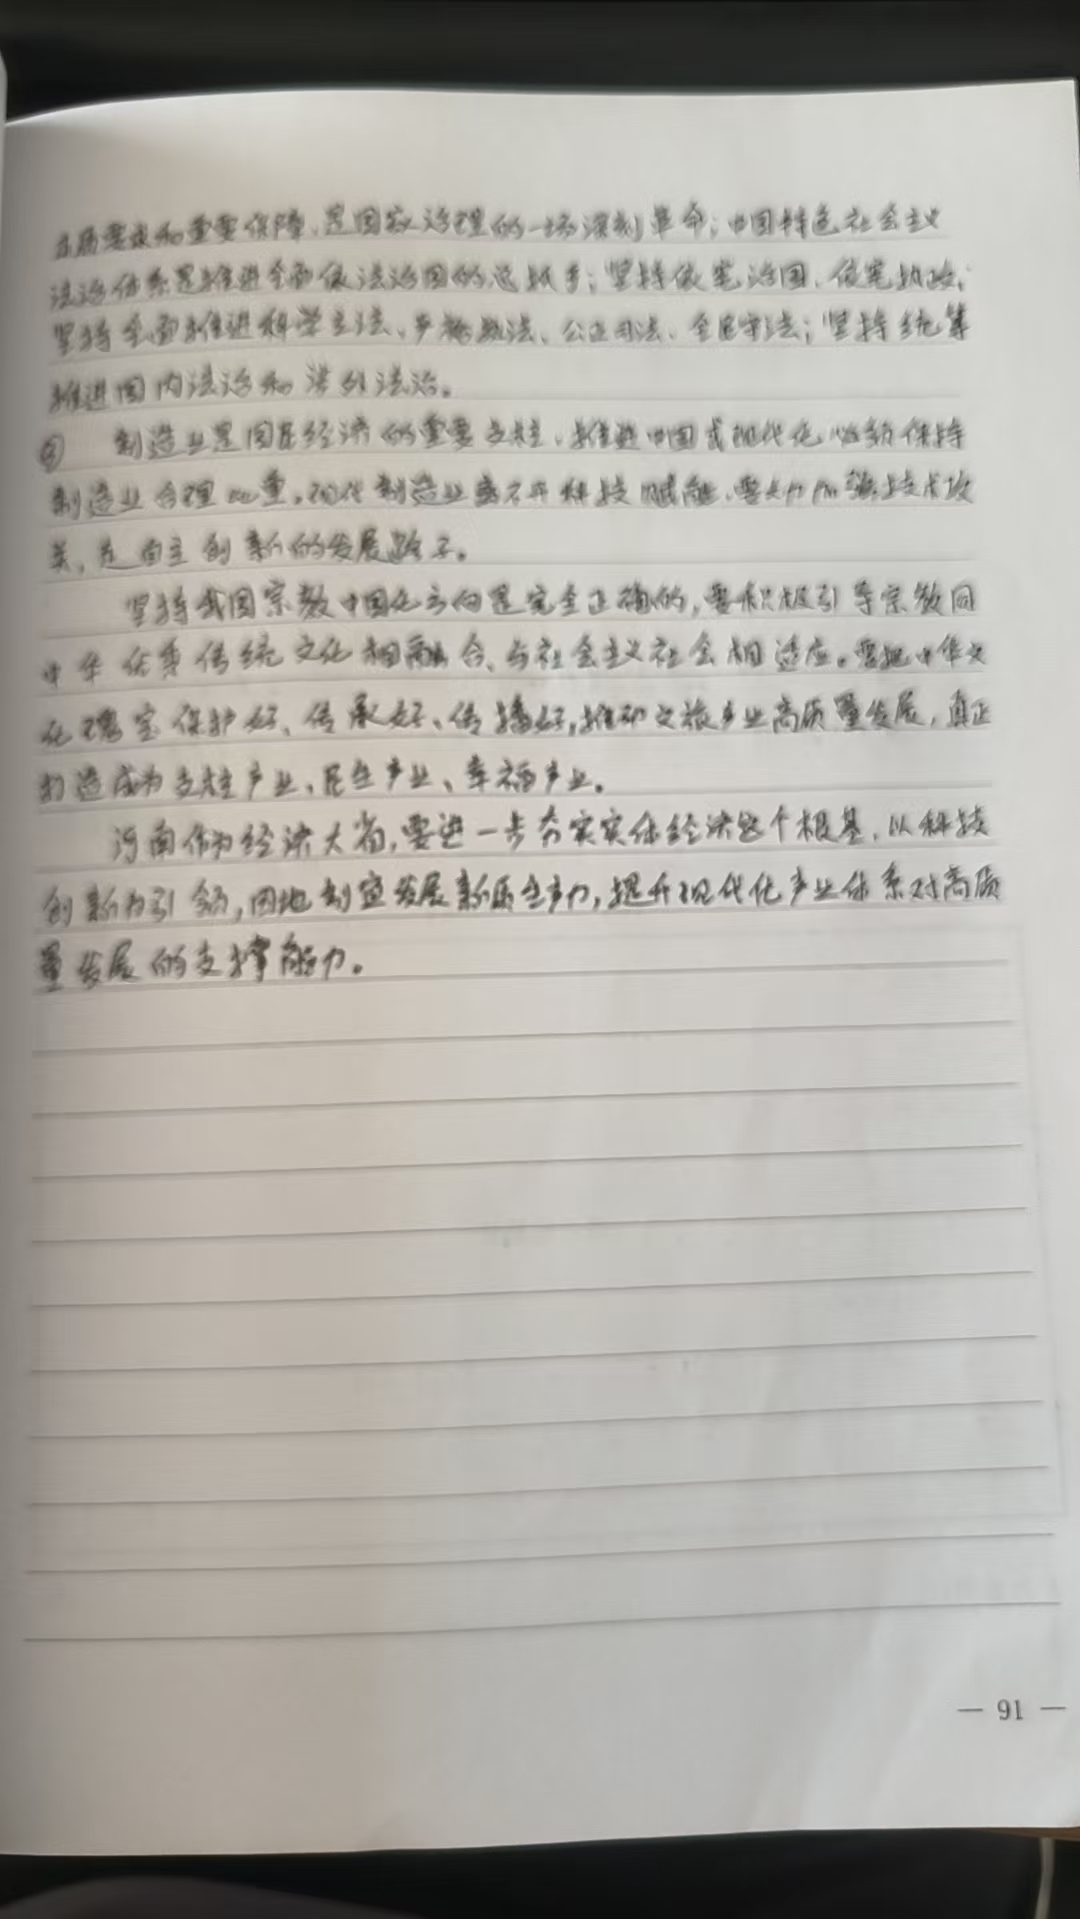 本质要求和重要保障,是国家治理的一场深刻革命;中国特色社会主义
法治体系是推进全面依法治国的总抓手;坚持依宪治国、依宪执政;
坚持全面推进科学立法、严格执法、公正司法、全民守法;坚持统筹
推进国内法治和涉外法治。
④ 制造业是国民经济的重要支柱,推进中国式现代化必须保持
制造业合理比重。现代制造业离不开科技赋能,要大力加强技术攻
关,走自主创新的发展路子。
坚持我国宗教中国化方向是完全正确的,要积极引导宗教同
中华优秀传统文化相融合、与社会主义社会相适应。要把中华文
化瑰宝保护好、传承好、传播好,推动文旅产业高质量发展,真正
打造成为支柱产业、民生产业、幸福产业。
河南作为经济大省,要进一步夯实实体经济这个根基,以科技
创新为引领,因地制宜发展新质生产力,提升现代化产业体系对高质
量发展的支撑能力。
— 91 —